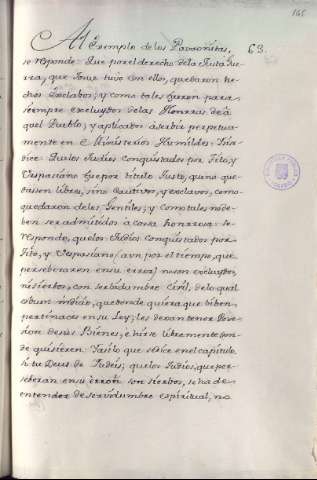 145
Al Exemplo de los Pavaonitas, 63.
se responde: Que por el derecho de la Justa Gue-
rra, que Josue tuvo con ellos, quedaron he-
chos Esclabos; y como tales fueron para
siempre excluydos de las Honrras de a-
quel Pueblo; y aplicados à serbir perpetua-
mente en Ministerios Humildes: Si
dice que los Judios conquistados por Tito, y
Vespasiano fue por titulo Justo, qui no que-
dassen libres, sino Cautivos, y esclavos, como
quedaron de los Gentiles; y Como tales no de-
ben ser admitidos à cosa honrrosa: se
responde, que los Judios Conquistados por
Tito, y Vespasiano (aun por el tiempo, que
perseberaren en su error) no son excluydos,
ni sierbos, con serbidumbre Civil, de lo qual
es buen indicio, que donde quiera que viben
pertinaces en su Ley; les dexan tener Pose-
sion de sus Bienes, è hirse libremente don-
de quisieren: Y assi lo que se dice en el capitulo,
si tu Deus de Judeis; que los Judios, que per-
seberan en su error son sierbos, se ha de
entender de serbidumbre espiritual, no